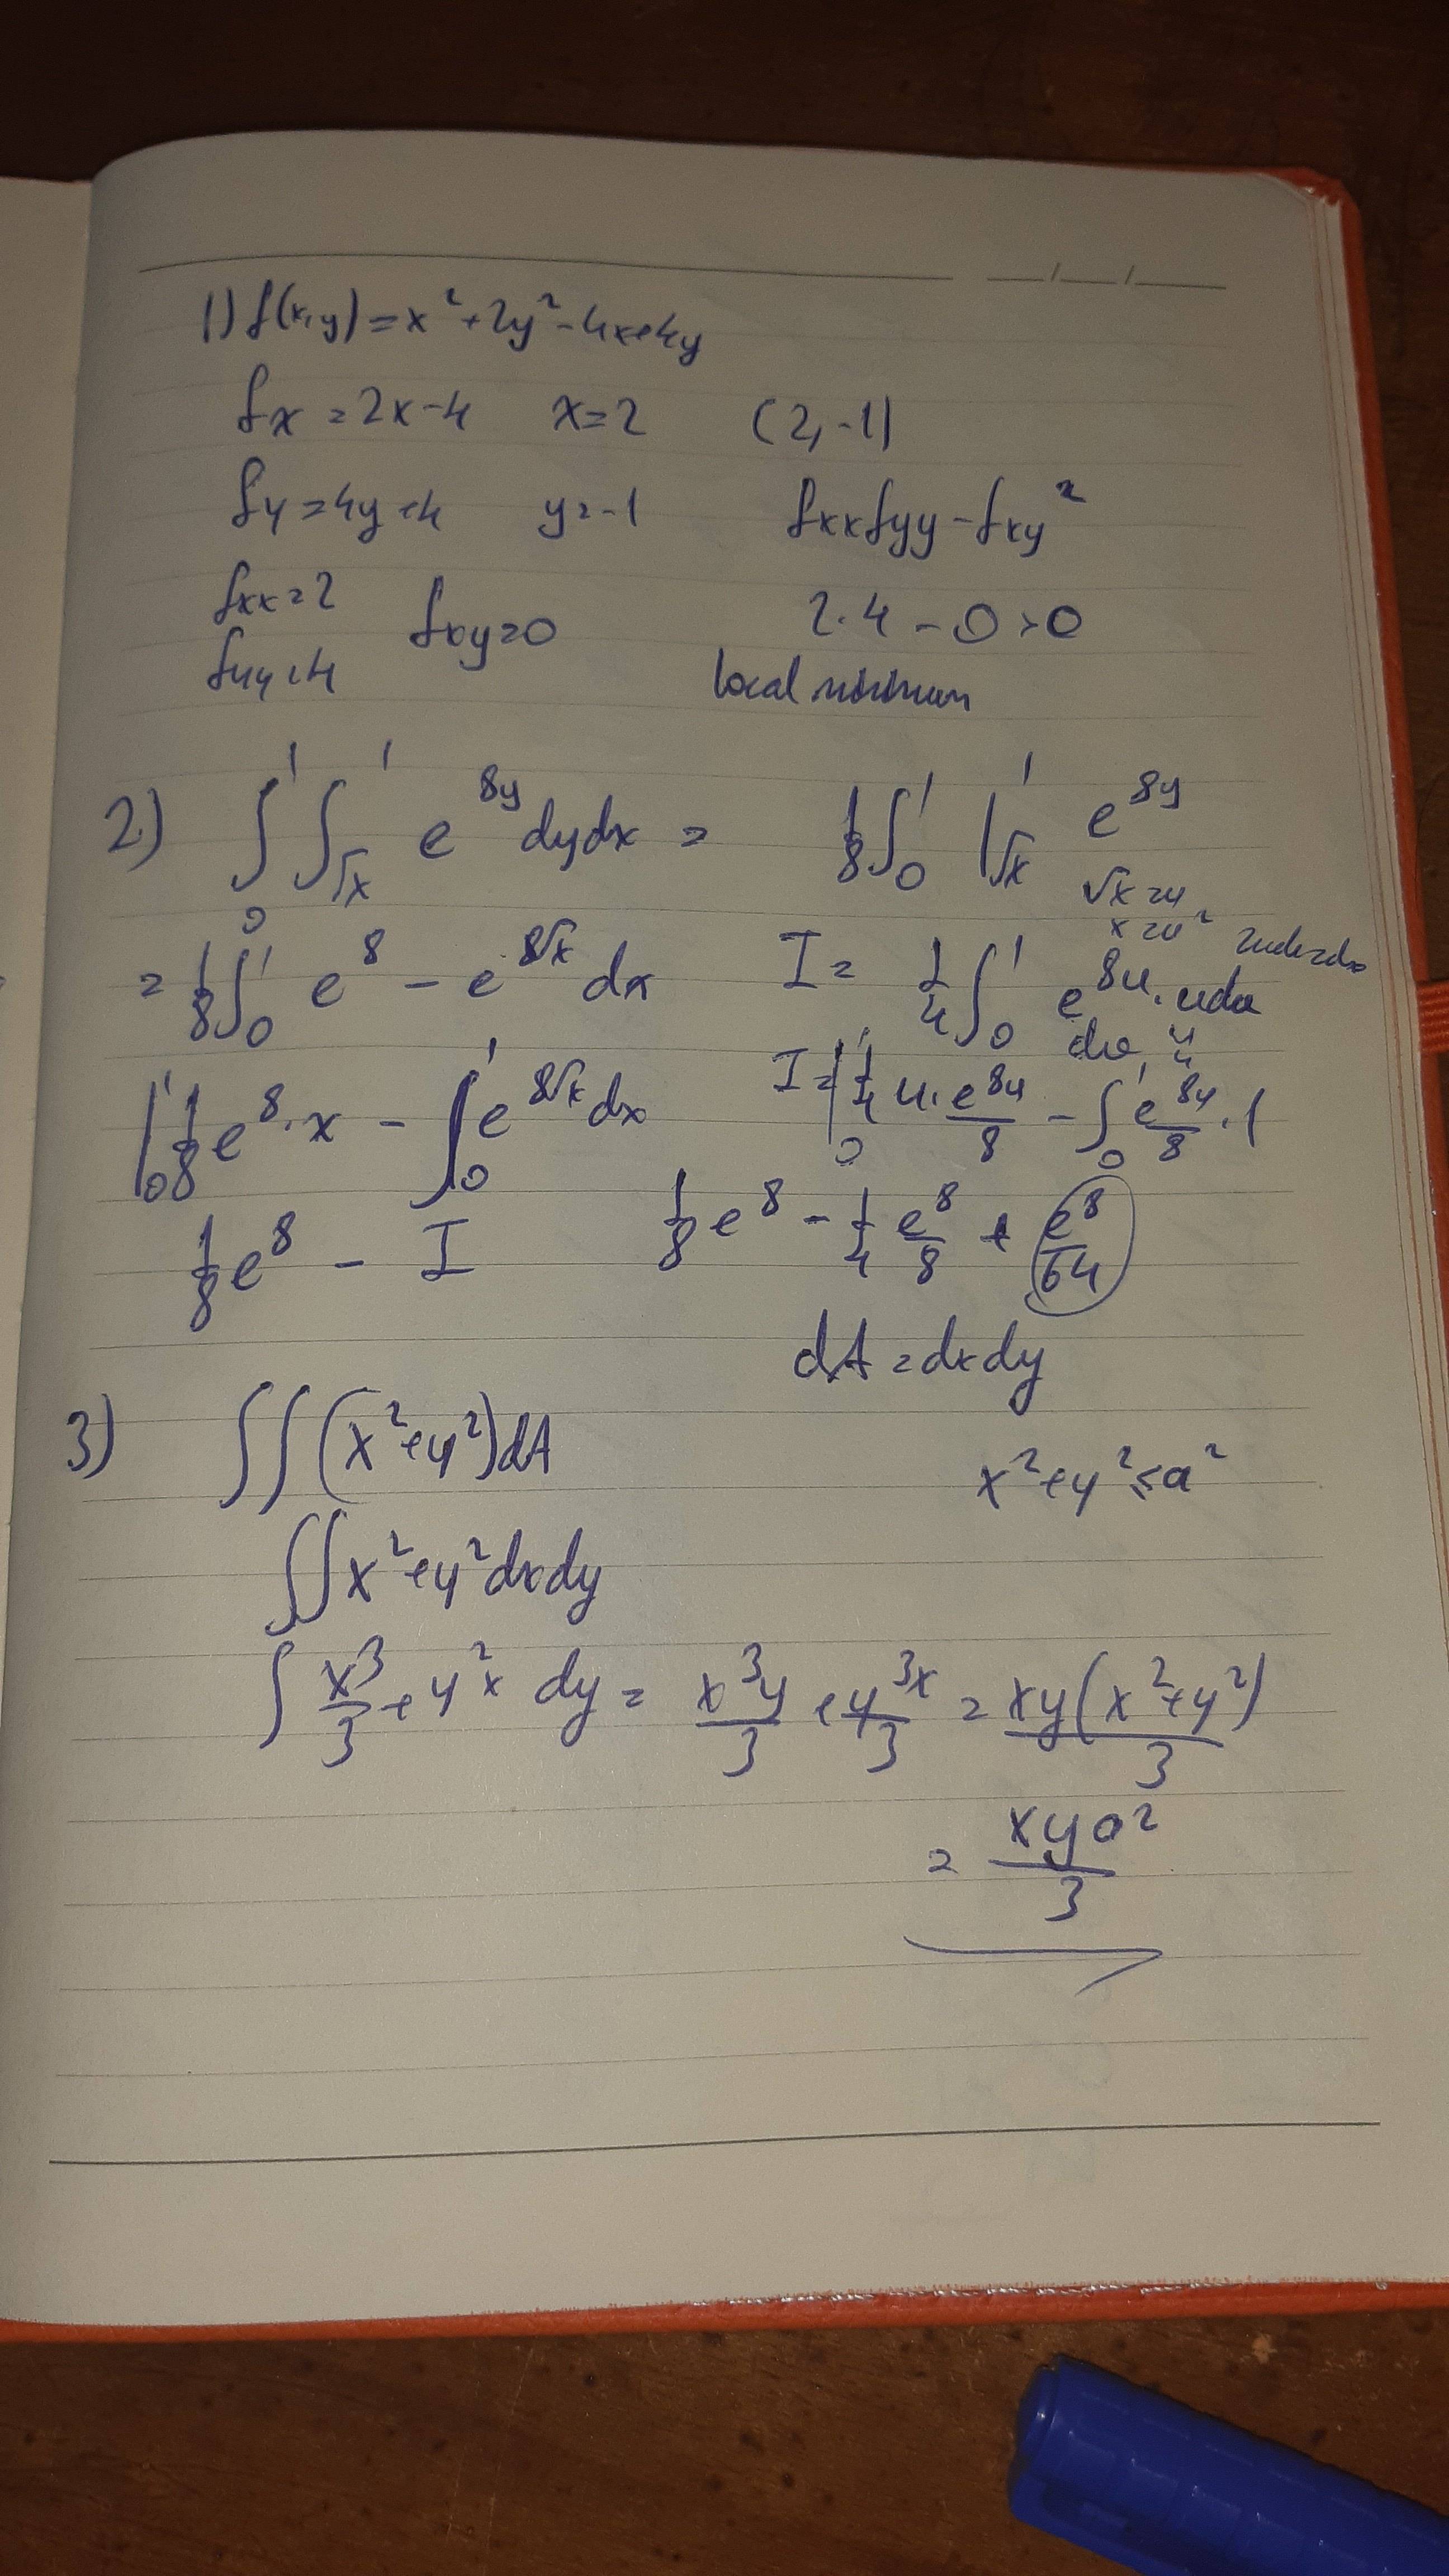 1) f(x,y) = x² + 2y² - 4x + 4y
fx = 2x - 4 x = 2 (2, -1)
fy = 4y + 4 y = -1 fxxfyy - fxy²
fxx = 2 fxy = 0 2.4 - 0 > 0
fyy = 4 local minimum
2) ∫₀¹ ∫_√x¹ e^8y dydx = 1/8 ∫₀¹ |_√x¹ e^8y
√x = u
x = u² 2udu = dx
= 1/8 ∫₀¹ e^8 - e^8√x dx I = 1/4 ∫₀¹ e^8u . udu
dv u
|₀¹ 1/8 e^8 . x - ∫₀¹ e^8√x dx I = |₀¹ 1/4 u . e^8u/8 - ∫₀¹ e^8u/8 . 1
1/8 e^8 - I 1/8 e^8 - 1/4 e^8/8 + e^8/64
dA = dxdy
3) ∫∫ (x² + y²) dA x² + y² ≤ a²
∫∫ x² + y² dxdy
∫ x³/3 + y²x dy = x³y/3 + y³x/3 = xy(x² + y²)/3
= xya²/3